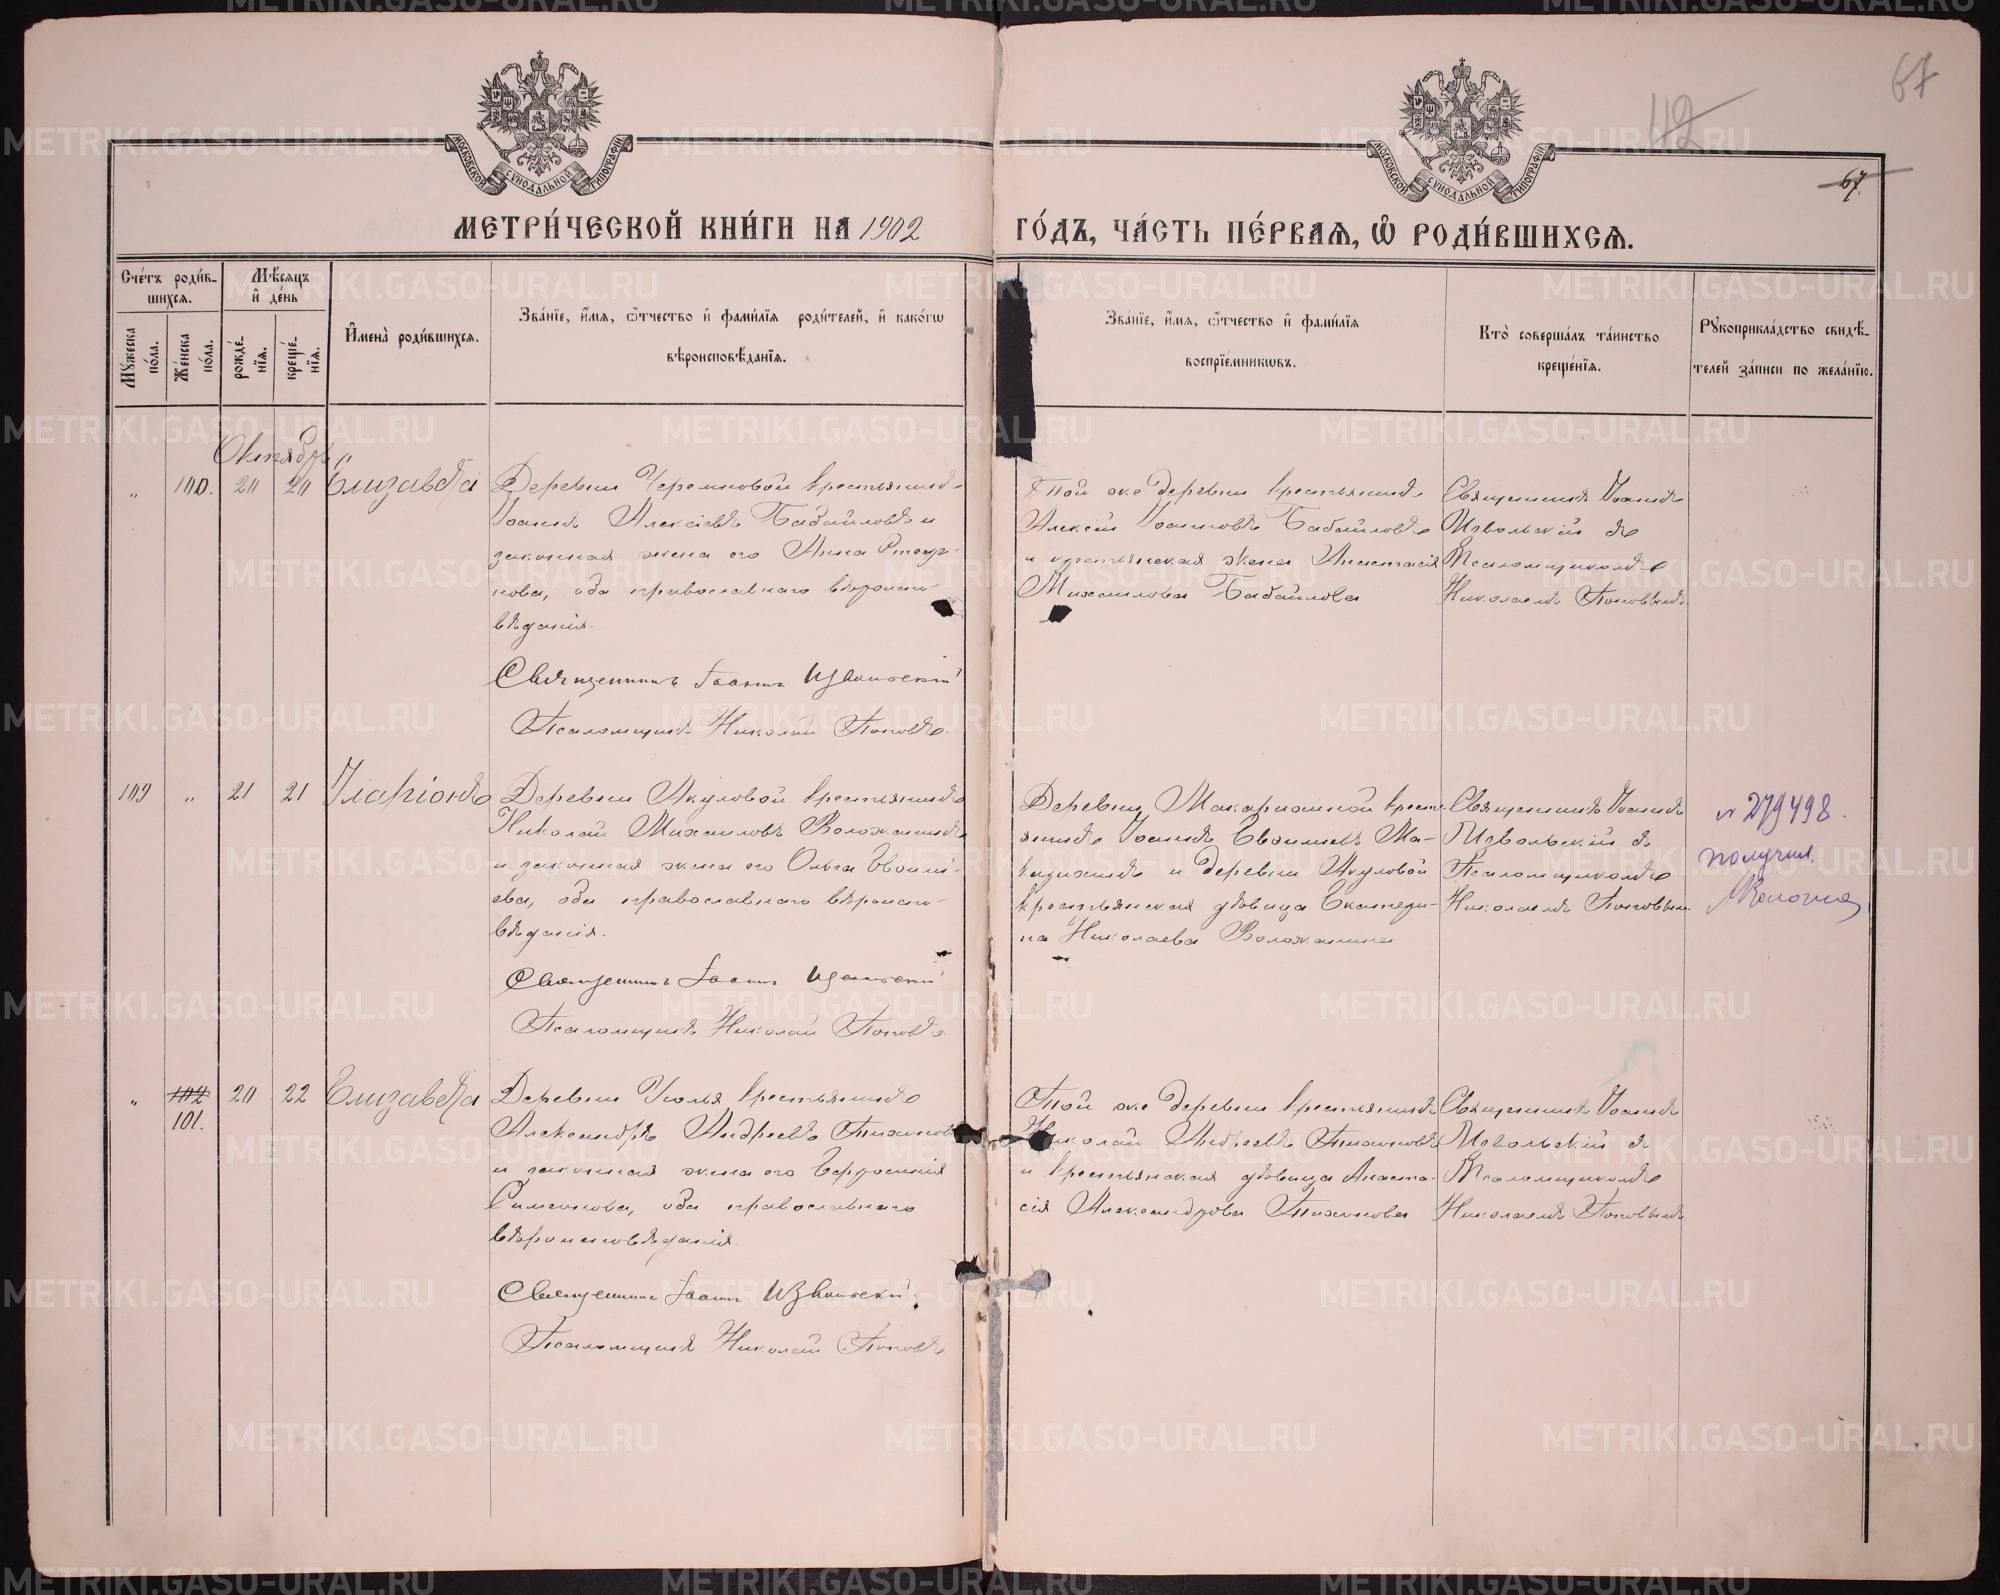 67
112
67.
МОСКОВСКОЙ СѴНОДАЛЬНОЙ ТИПОГРАФІИ
МОСКОВСКОЙ СѴНОДАЛЬНОЙ ТИПОГРАФІИ
МЕТРИ́ЧЕСКОЙ КНИ́ГИ НА 1902
ГО́ДЪ, ЧА́СТЬ ПЕ́РВАѦ, Ѽ РОДИ́ВШИХСѦ.
Сче́тъ роди́в-
шихсѧ.
Мѣ́сѧцъ
и҆ де́нь
Мꙋ́жеска по́ла.
Же́нска по́ла.
рожде́-
нїѧ.
креще́-
нїѧ.
И҆мена̀ роди́вшихсѧ.
Зва́нїе, и҆́мѧ, ѻ҆́тчество и҆ фами́лїѧ роди́телей, и҆ како́гѡ
вѣроисповѣ́данїѧ.
Зва́нїе, и҆́мѧ, ѻ҆́тчество и҆ фами́лїѧ
воспрїе́мникѡвъ.
Кто̀ соверша́лъ та́инство
креще́нїѧ.
Рꙋкоприкла́дство свидѣ́-
телей за́писи по жела́нїю.
Октябрь
„ 100. 20 20 Елизавета
Деревни Черемновой крестьянинъ
Іоаннъ Алексіевъ Бабайловъ и
законная жена его Анна
нова, оба православнаго вѣроиспо-
вѣданія.
Священникъ Іоаннъ Извольскій
Псаломщикъ Николай Поповъ.
Той же деревни крестьянинъ
Алексій Іоанновъ Бабайловъ
и крестьянская жена Анастасія
Михаилова Бабайлова
Священникъ Іоаннъ
Извольскій съ
Псаломщикомъ
Николаемъ Поповымъ
109 „ 21 21 Иларіонъ
Деревни Акуловой крестьянинъ
Николай Михаиловъ Воложанинъ
и законная жена его Ольга
ева, оба православнаго вѣроиспо-
вѣданія.
Священникъ Іоаннъ Извольскій
Псаломщикъ Николай Поповъ.
Деревни крестья-
нинъ Іоаннъ Ма-
и деревни Акуловой
крестьянская дѣвица Екатери-
на Николаева Воложанина
Священникъ Іоаннъ
Извольскій съ
Псаломщикомъ
Николаемъ Поповым
№ 279498.
получил.
„ 102 20 22 Елизавета
101.
Деревни крестьянинъ
Александръ Андреевъ Тихонов
и законная жена его Евфросинія
Симеонова, оба православнаго
вѣроисповѣданія.
Священникъ Іоаннъ Извольскій
Псаломщикъ Николай Поповъ
Той же деревни крестьянинъ
Николай Андреевъ Тихоновъ
и крестьянская дѣвица Анаста-
сія Александрова Тихонова
Священникъ Іоаннъ
Извольскій съ
Псаломщикомъ
Николаемъ Поповымъ
METRIKI.GASO-URAL.RU